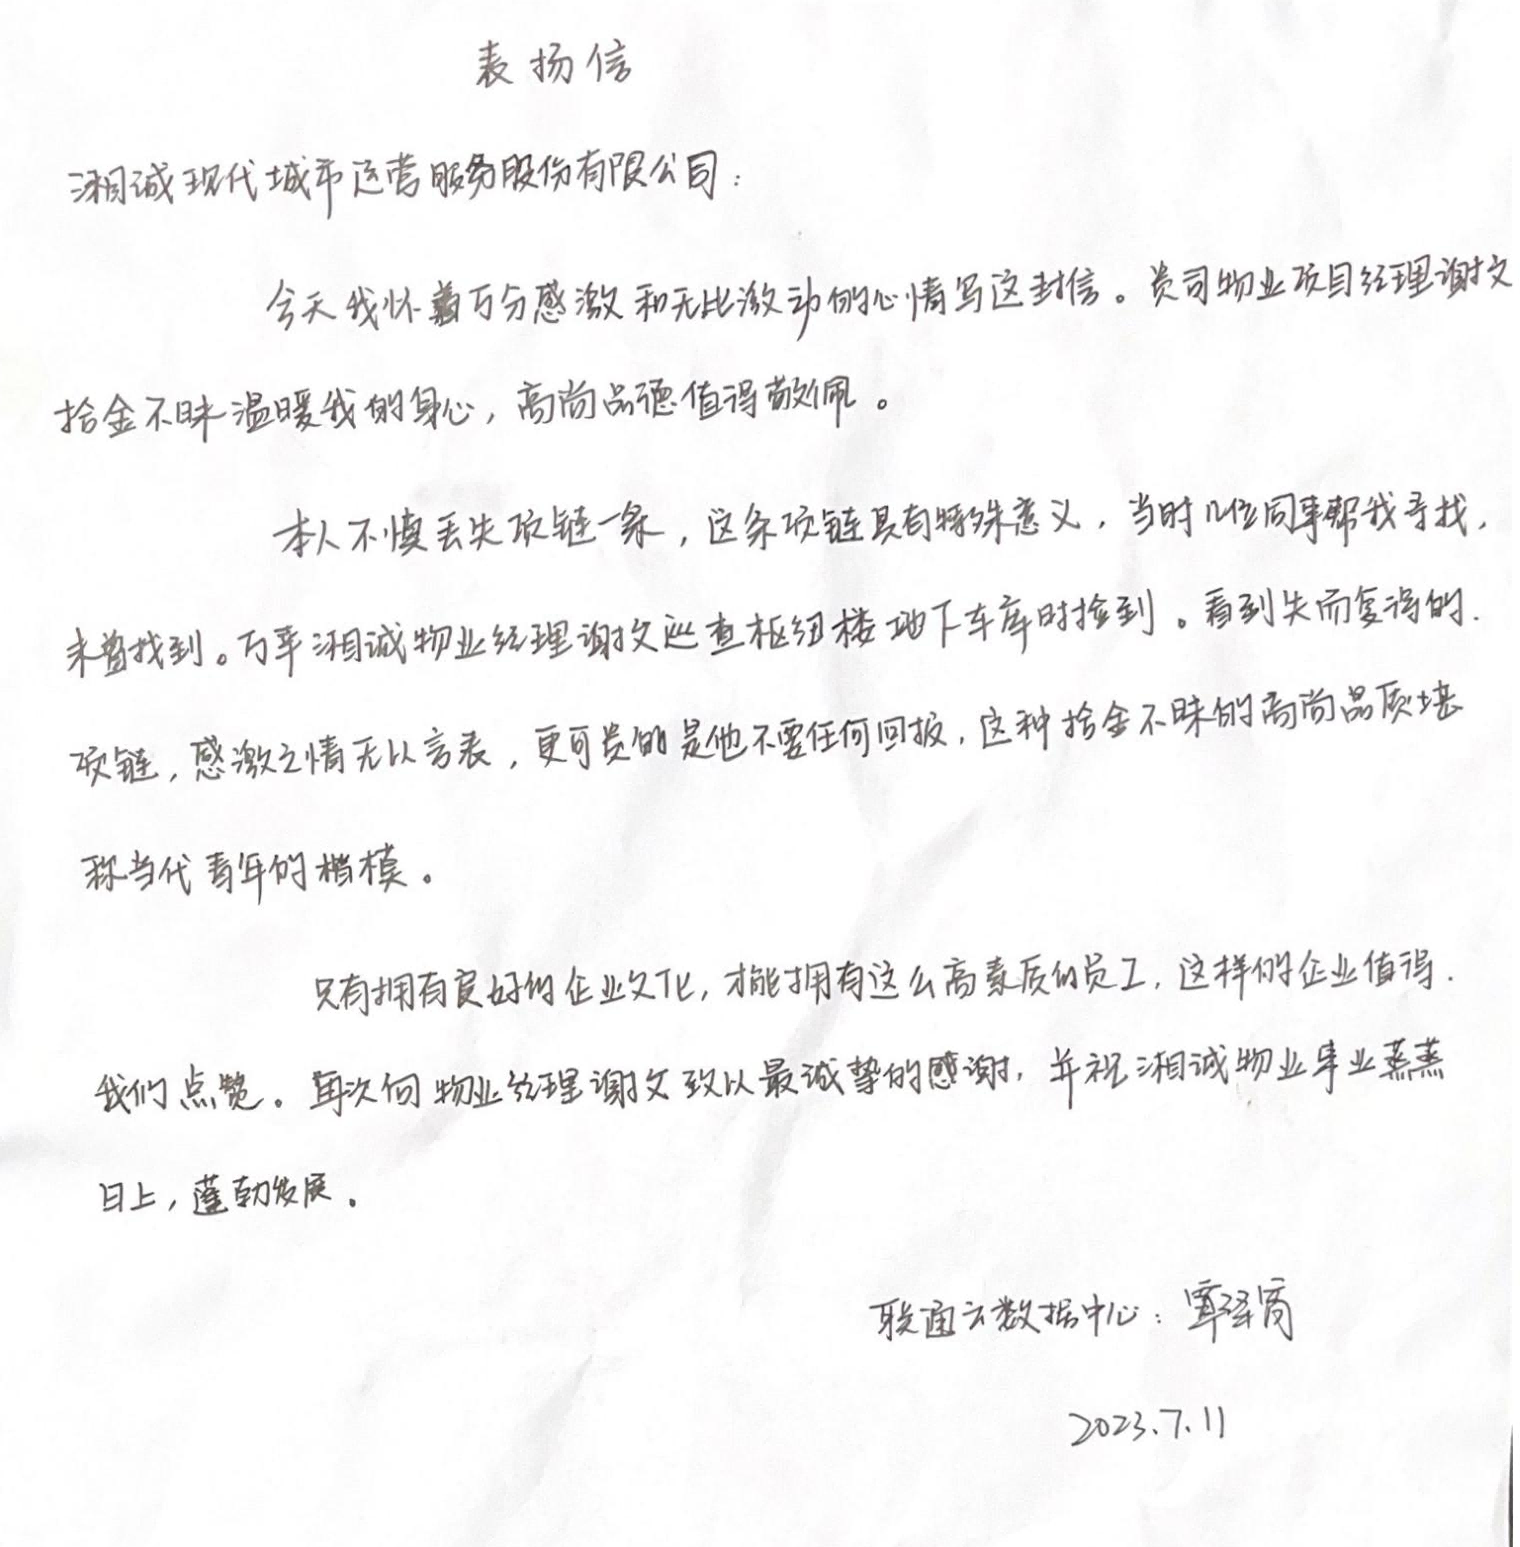 表扬信
湘诚现代城市运营服务股份有限公司：
今天我怀着万分感激和无比激动的心情写这封信。贵司物业项目经理谢文
拾金不昧温暖我的身心，高尚品德值得敬佩。
本人不慎丢失项链一条，这条项链具有特殊意义，当时几位同事帮我寻找，
未曾找到。万幸湘诚物业经理谢文巡查枢纽楼地下车库时捡到。看到失而复得的
项链，感激之情无以言表，更可贵的是他不要任何回报，这种拾金不昧的高尚品质堪
称当代青年的楷模。
只有拥有良好的企业文化，才能拥有这么高素质的员工，这样的企业值得
我们点赞。再次向物业经理谢文致以最诚挚的感谢，并祝湘诚物业事业蒸蒸
日上，蓬勃发展。
联通云数据中心：覃泽
2023.7.11